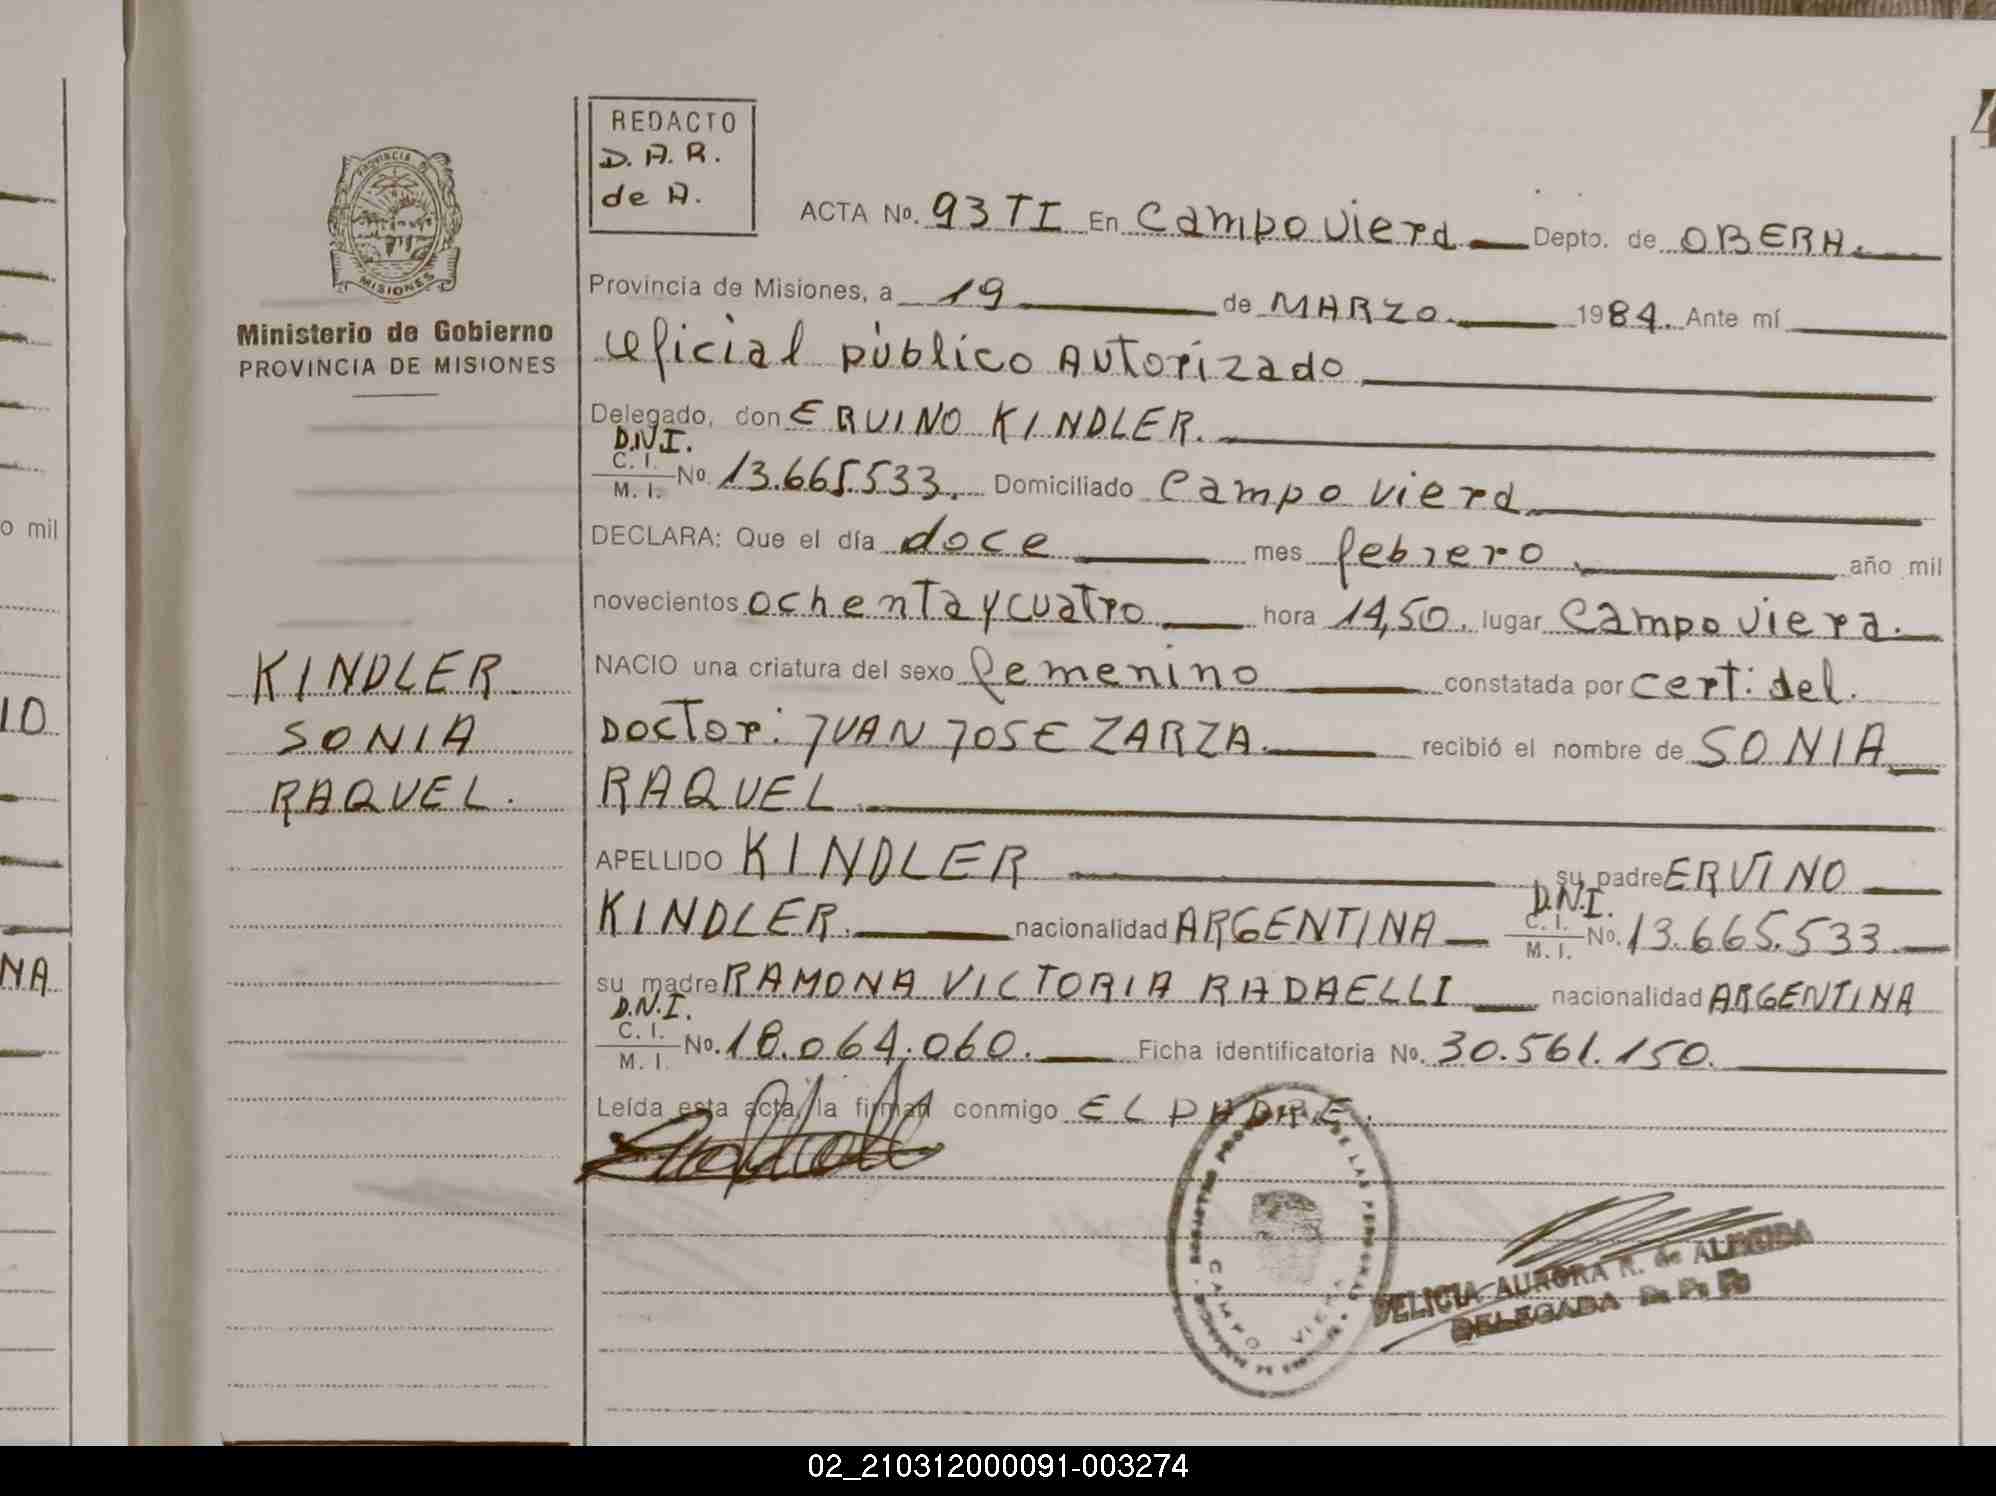 REDACTO
D. A. R.
de A.
PROVINCIA DE
MISIONES
Ministerio de Gobierno
PROVINCIA DE MISIONES
KINDLER
SONIA
RAQUEL.
ACTA No. 93 TI En Campo Viera Depto. de OBERA.
Provincia de Misiones, a 19 de MARZO. 1984. Ante mí
Oficial público Autorizado
Delegado, don ERVINO KINDLER.
D.N.I.
C. I.
M. I. No. 13.665.533. Domiciliado Campo Viera
DECLARA: Que el día doce mes febrero año mil
novecientos ochenta y cuatro hora 14,50. lugar Campo Viera.
NACIO una criatura del sexo femenino constatada por cert: del.
Doctor: JUAN JOSE ZARZA. recibió el nombre de SONIA
RAQUEL
APELLIDO KINDLER su padre ERVINO
KINDLER. nacionalidad ARGENTINA D.N.I. C. I. M. I. No. 13.665.533
su madre RAMONA VICTORIA RADAELLI nacionalidad ARGENTINA
D.N.I.
C. I.
M. I. No. 18.064.060. Ficha identificatoria No. 30.561.150.
Leída esta acta, la firman conmigo EL PADRE.
DE LAS PERSONAS
CAMPO VIERA
DELICIA AURORA R. de ALMEIDA
DELEGADA
o mil
IO
NA
02_210312000091-003274